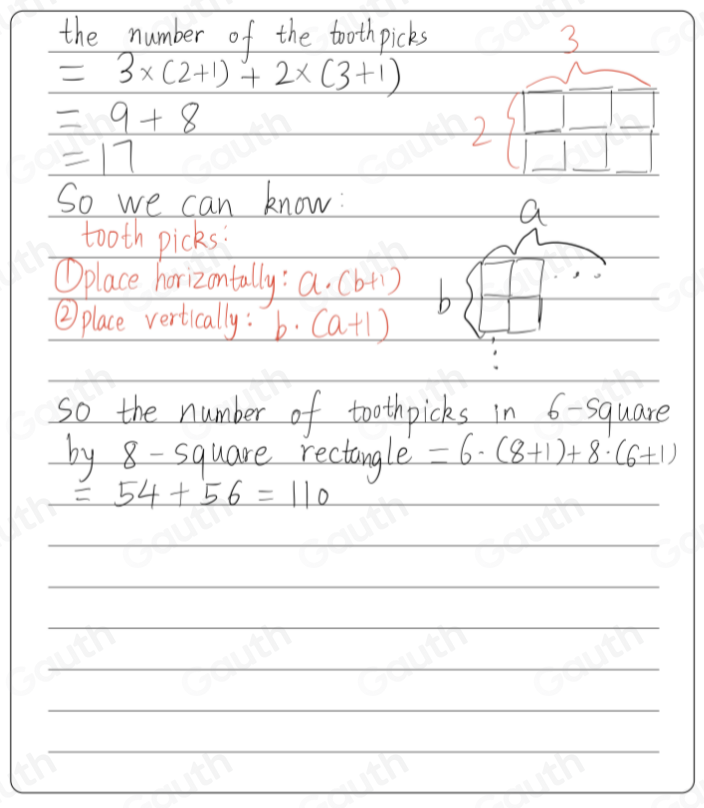 the number of the toothpicks
= 3×(2+1) + 2×(3+1)
= 9 + 8
= 17
3
2
So we can know:
tooth picks:
①place horizontally: a·(b+1)
②place vertically: b·(a+1)
a
b
So the number of toothpicks in 6-square
by 8-square rectangle = 6·(8+1)+8·(6+1)
= 54 + 56 = 110